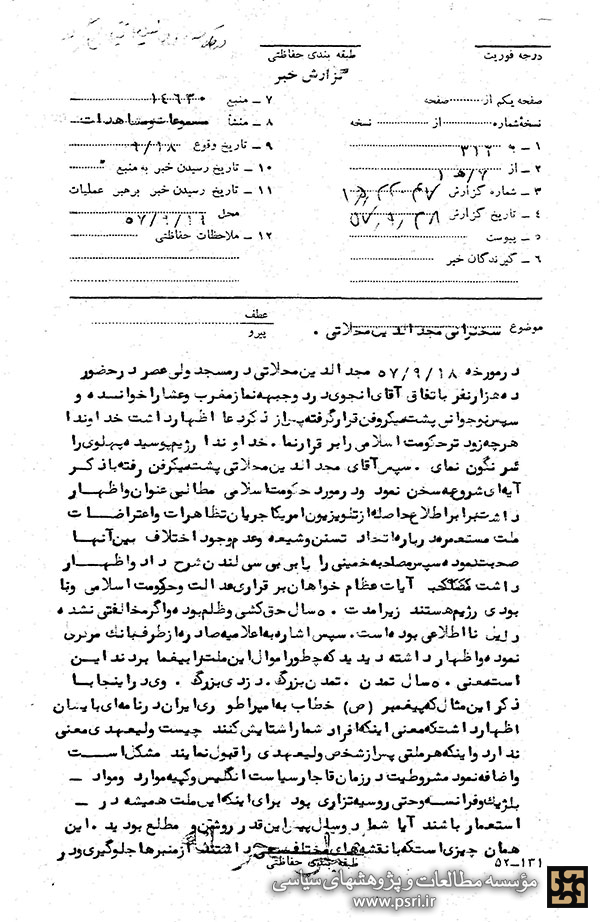 درجه فوریت
طبقه بندی حفاظتی
گزارش خبر
صفحه یکم از صفحه
نسخه شماره از نسخه
۱ ـ به ۳۱۲
۲ ـ از ۷/ه ۱
۳ ـ شماره گزارش
۴ ـ تاریخ گزارش
۵ ـ پیوست
۶ ـ گیرندگان خبر
۷ ـ منبع ۱۴۶۳۰
۸ ـ منشأ مسموعات و مشاهدات
۹ ـ تاریخ وقوع ۹/۱۸
۱۰ ـ تاریخ رسیدن خبر به منبع
۱۱ ـ تاریخ رسیدن خبر برهبر عملیات
محل ۵۷/۹/۱۹
۱۲ ـ ملاحظات حفاظتی
موضوع سخنرانی مجدالدین محلاتی .
عطف
پیرو
در مورخه ۵۷/۹/۱۸ مجدالدین محلاتی در مسجد ولی عصر در حضور
ده هزار نفر باتفاق آقای انجوی درد وجبهه نماز مغرب وعشا را خوانده و
سپس نوجوانی پشت میکروفن قرار گرفته پس از ذکر دعا اظهار داشت خداوندا
هرچه زودتر حکومت اسلامی را برقرار نما . خداوندا رژیم پوسیده پهلوی را
سرنگون نمای . سپس آقای مجدالدین محلاتی پشت میکروفن رفته با ذکر
آیه ای شروع به سخن نمود ودر مورد حکومت اسلامی مطالبی عنوان واظهار
داشت برابر اطلاع حاصله از تلویزیون امریکا جریان تظاهرات واعتراضات
ملت مستعمره درباره اتحاد تسنن وشیعه وعدم وجود اختلاف بین آنها
صحبت نموده سپس مصاحبه خمینی را با بی بی سی لندن شرح داد واظهار
داشت آیات عظام خواهان برقراری عدالت وحکومت اسلامی ونا
بودی رژیم هستند زیرا مدت ۵۰ سال حق کشی وظلم بوده واگر مخالفتی نشده
روی نا اطلاعی بوده است . سپس اشاره به اعلامیه صادره از طرف بانک مرکزی
نموده واظهار داشته دیدید که چطور اموال این ملت را بیغما بردند این
است معنی ۵۰ سال تمدن . تمدن بزرگ . دزدی بزرگ . وی در اینجا با
ذکر این مثال که پیغمبر (ص) خطاب به امپراطوری ایران در نامه ای بایشان
اظهار داشت که معنی اینکه افراد شما را ستایش کنند چیست ولیعهدی معنی
ندارد واینکه هر ملتی پس از شخص ولیعهدی را قبول نمایند مشکل است
واضافه نمود مشروطیت در زمان قاجار سیاست انگلیس وکپیه موارد ومواد ـ
بلژیک وفرانسه وحتی روسیه تزاری بود برای اینکه این ملت همیشه در ـ
استعمار باشند آیا شما دو سال پیش این قدر روشن و مطلع بودید . این
همان چیزی است که با نقشه های مختلف سعی داشتند از منبرها جلوگیری ودر
طبقه بندی حفاظتی
۵۲ـ۱۳۱
مؤسسه مطالعات و پژوهشهای سیاسی
www.psri.ir